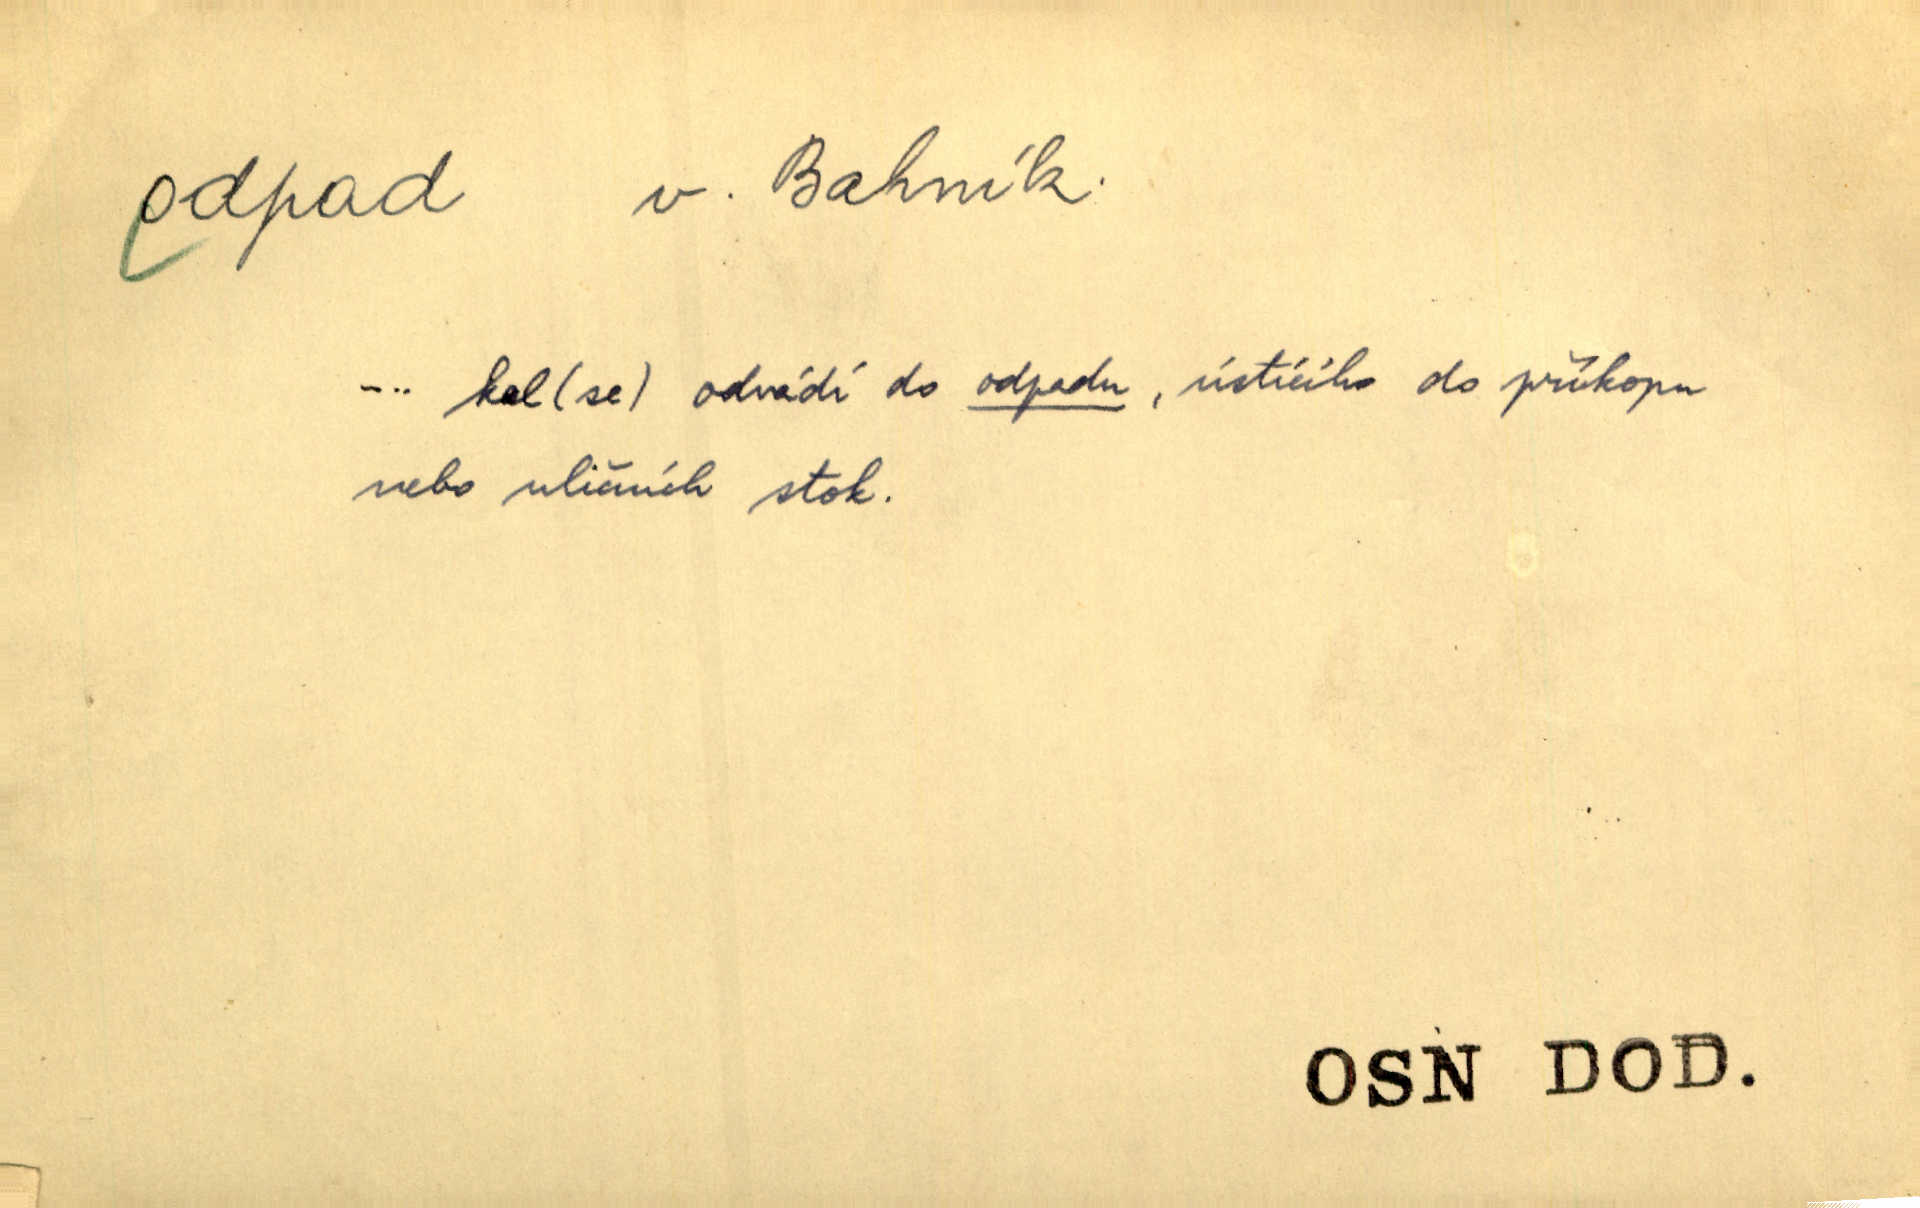 odpad v. Bahník.
... kal (se) odvádí do odpadu, ústícího do příkopu
nebo uličních stok.
OSN DOD.